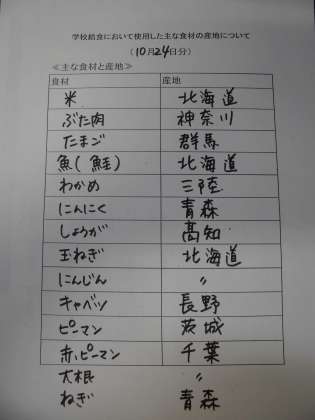 学校給食において使用した主な食材の産地について
(10月24日分)
≪主な食材と産地≫
食材 産地
米 北海道
ぶた肉 神奈川
たまご 群馬
魚(鮭) 北海道
わかめ 三陸
にんにく 青森
しょうが 高知
玉ねぎ 北海道
にんじん 〃
キャベツ 長野
ピーマン 茨城
赤ピーマン 千葉
大根 〃
ねぎ 青森